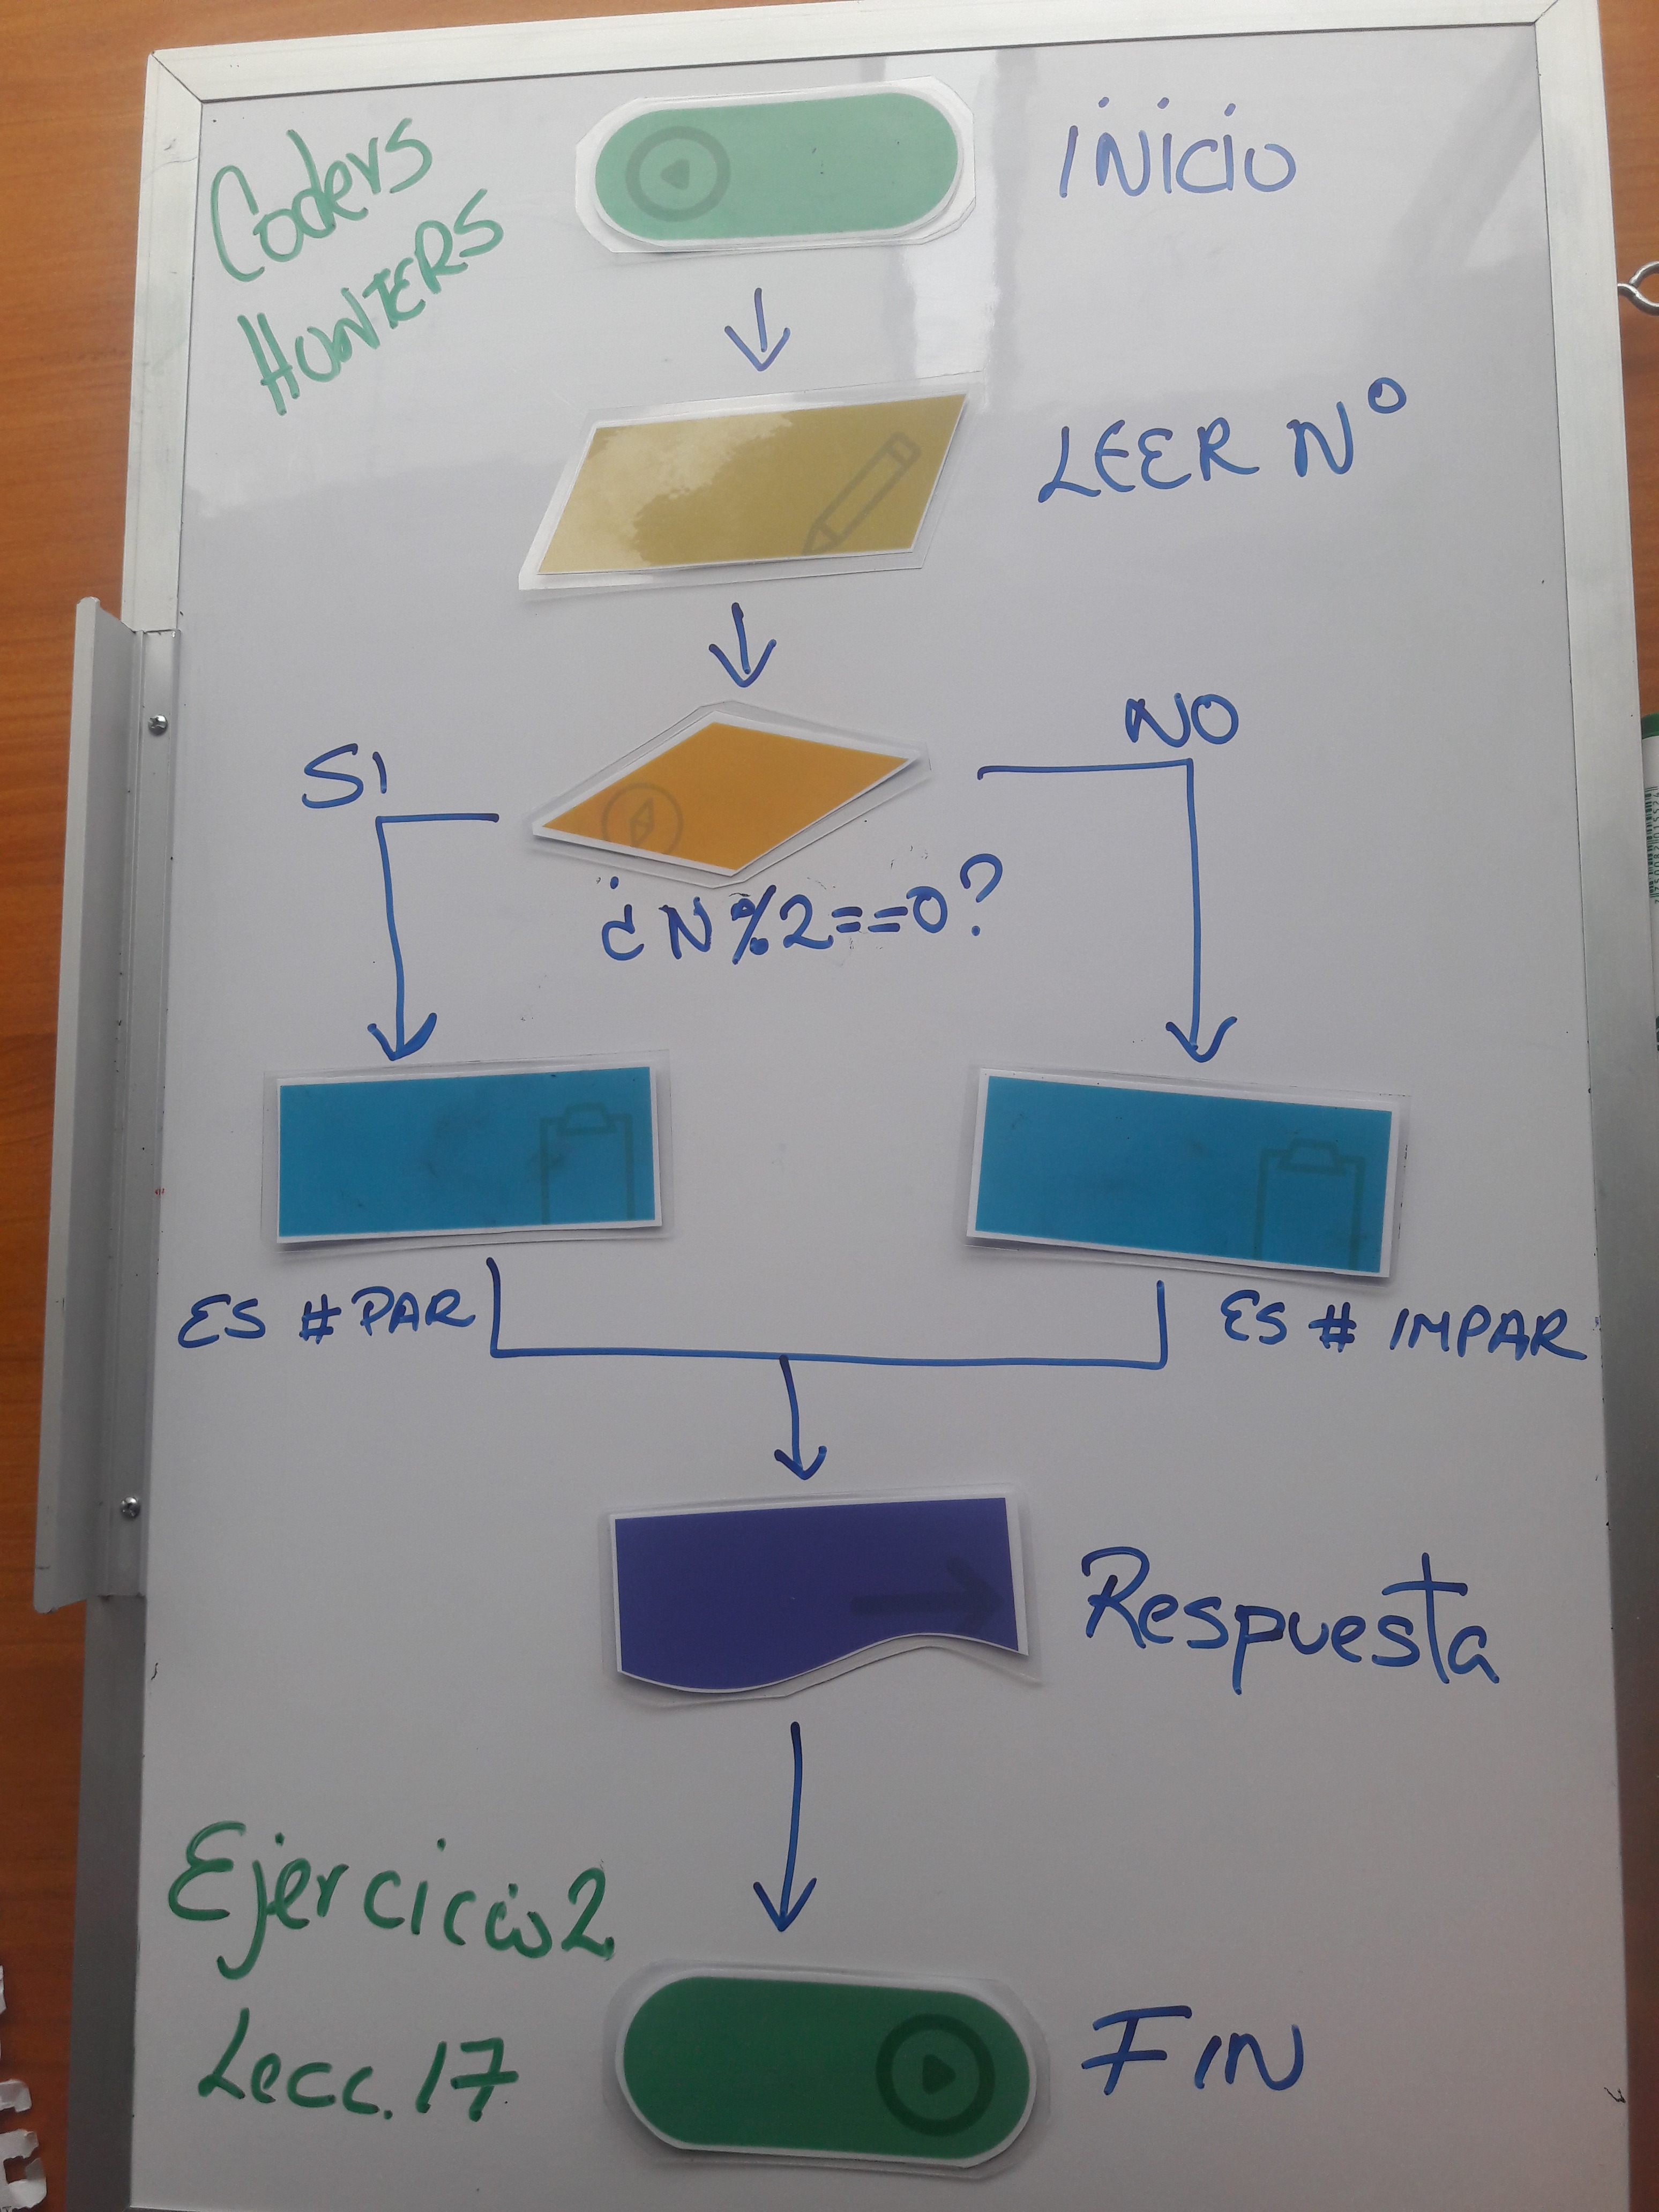 Coders
HUNTERS
INICIO
LEER Nº
SI
NO
¿N%2==0?
ES # PAR
ES # IMPAR
Respuesta
Ejercicio2
Lecc.17
FIN